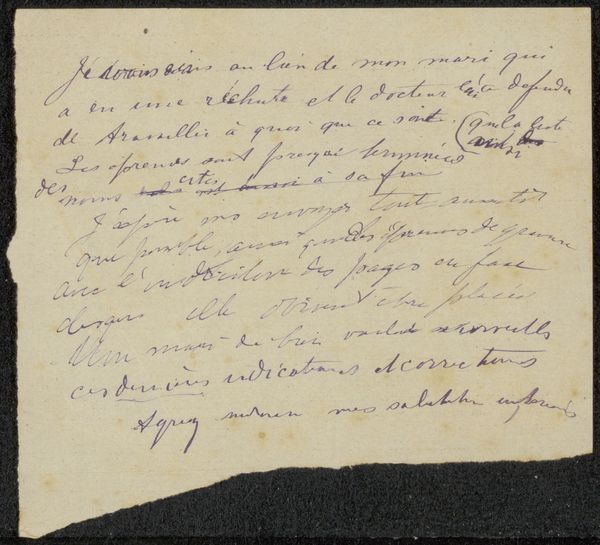 Je vous écris au lieu de mon mari qui
a eu une rechute et le docteur lui a défendu
de travailler à quoi que ce soit. (que la liste
Les épreuves sont presque terminées
des noms est à sa fin
J'espère vous envoyer tout aussitôt
que possible, ainsi que les épreuves de gravure
avec l'indication des pages en face
desquelles elle doivent être placées
mari de bien vouloir
ces dernières indications et corrections
Agréez monsieur mes salutations empressées